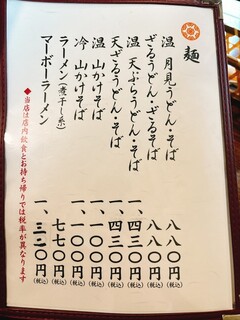 麺
温 月見うどん・そば 八八〇円(税込)
ざるうどん・ざるそば 八八〇円(税込)
温 天ぷらうどん・そば 一、四三〇円(税込)
天ざるうどん・そば 一、四三〇円(税込)
温 山かけそば 一、一〇〇円(税込)
冷 山かけそば 一、一〇〇円(税込)
ラーメン(煮干し系) 七七〇円(税込)
マーボーラーメン 一、三二〇円(税込)
◆当店は店内飲食とお持ち帰りでは税率が異なります